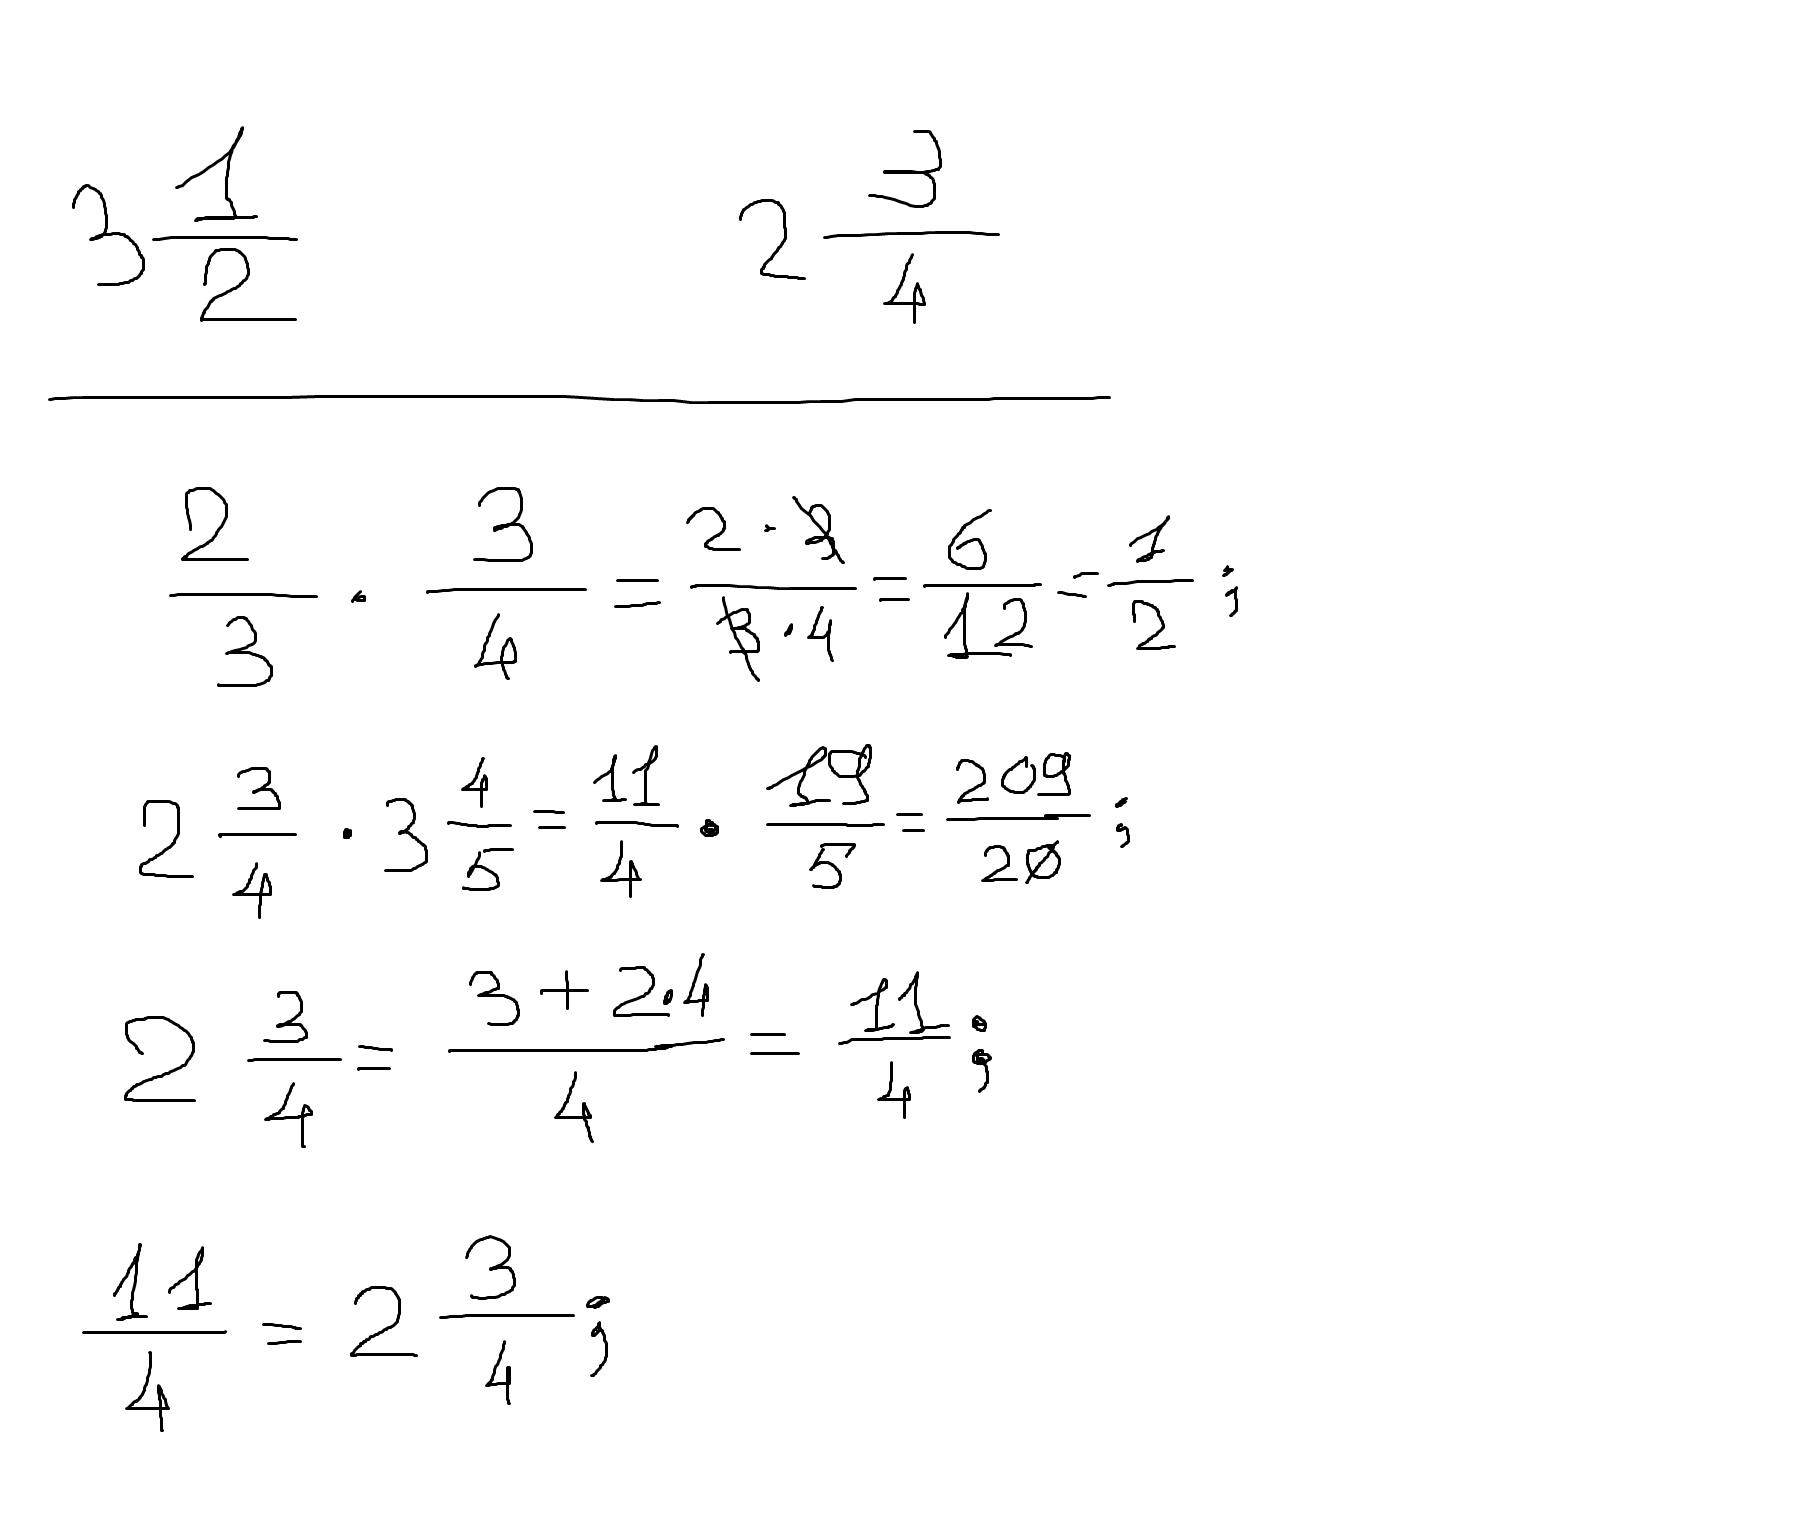 3 1/2    2 3/4
2/3 · 3/4 = 2·3/3·4 = 6/12 = 1/2 ;
2 3/4 · 3 4/5 = 11/4 · 19/5 = 209/20 ;
2 3/4 = 3+2·4/4 = 11/4 ;
11/4 = 2 3/4 ;